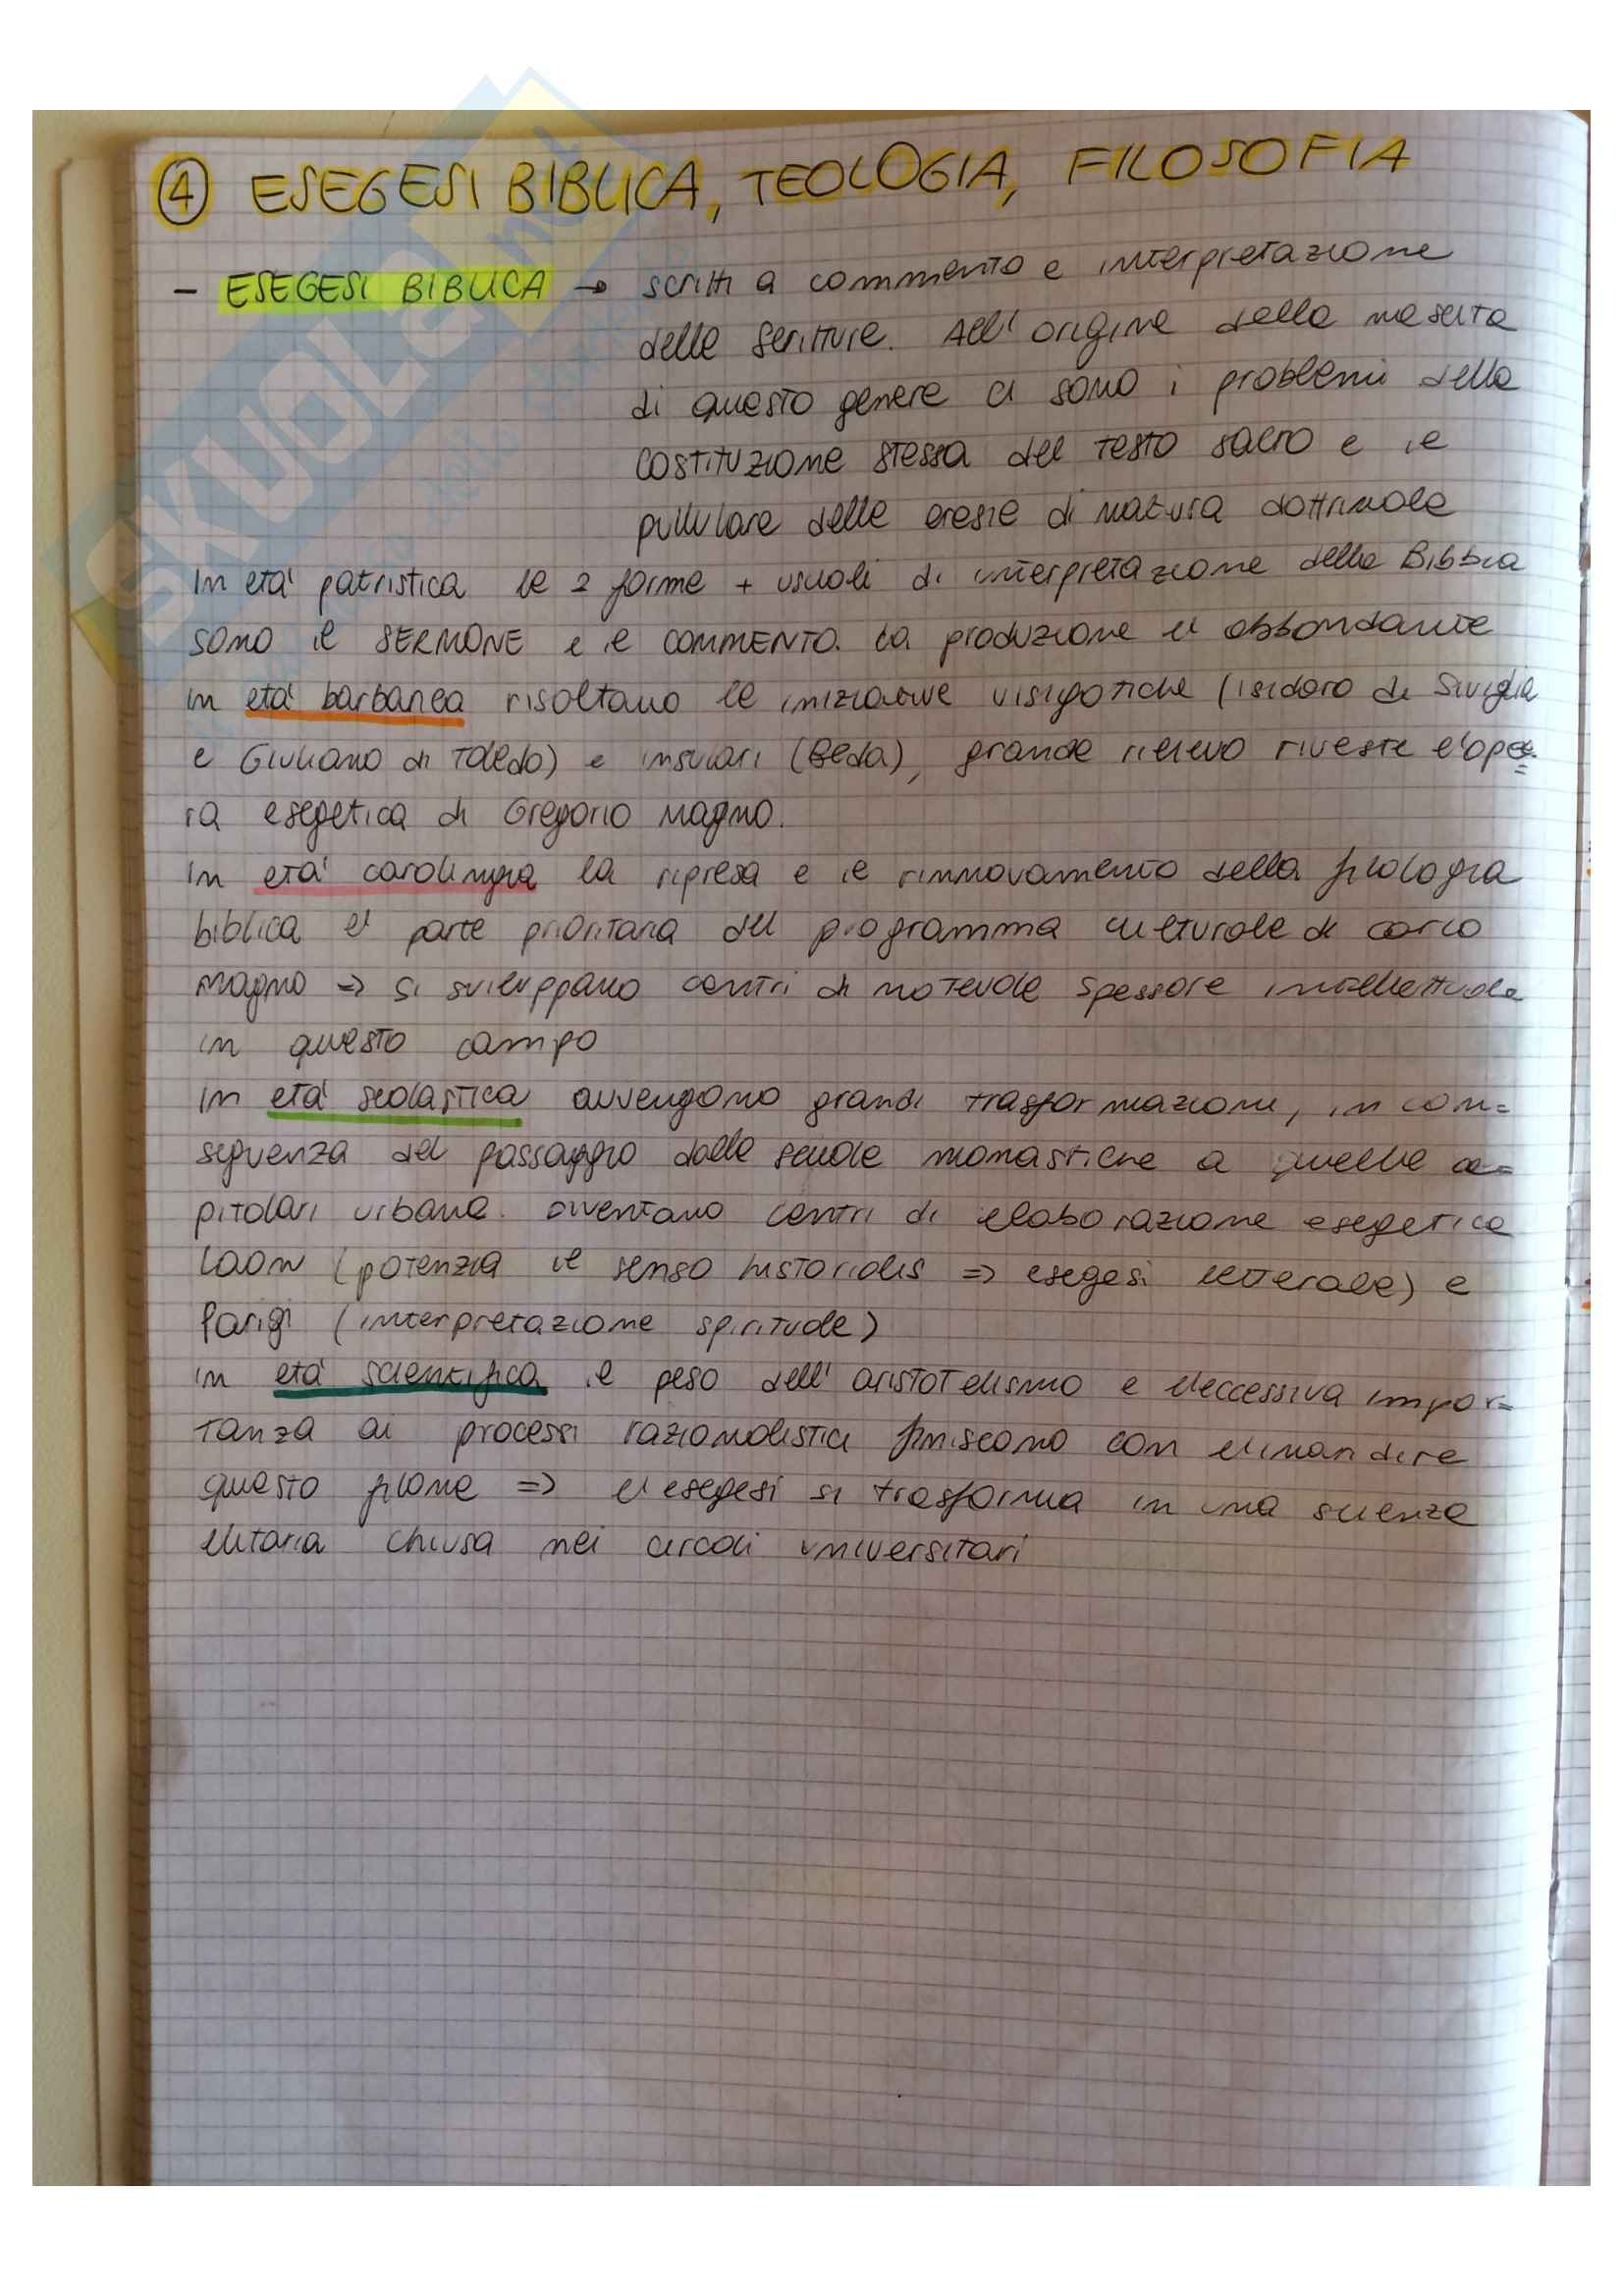 4 ESEGESI BIBLICA, TEOLOGIA, FILOSOFIA
- ESEGESI BIBLICA → scritti a commento e interpretazione
delle Scritture. All'origine della nascita
di questo genere ci sono i problemi della
costituzione stessa del testo sacro e il
pullulare delle eresie di natura dottrinale
In età patristica le 2 forme + usuali di interpretazione della Bibbia
sono il SERMONE e il COMMENTO. La produzione è abbondante
in età barbarica risaltano le iniziative visigotiche (Isidoro di Siviglia
e Giuliano di Toledo) e insulari (Beda), grande rilievo riveste l'ope=
ra esegetica di Gregorio Magno.
In età carolingia la ripresa e il rinnovamento della filologia
biblica è parte prioritaria del programma culturale di Carlo
Magno => si sviluppano centri di notevole spessore intellettuale
in questo campo
In età scolastica avvengono grandi trasformazioni, in con=
seguenza del passaggio dalle scuole monastiche a quelle ca=
pitolari urbane. Diventano centri di elaborazione esegetica
Laon (potenzia il senso historialis => esegesi letterale) e
Parigi (interpretazione spirituale)
in età scientifica il peso dell'aristotelismo e l'eccessiva impor=
tanza ai processi razionalistici finiscono con
questo filone => l'esegesi si trasforma in una scienza
elitaria chiusa nei circoli universitari
SKUOLA.net